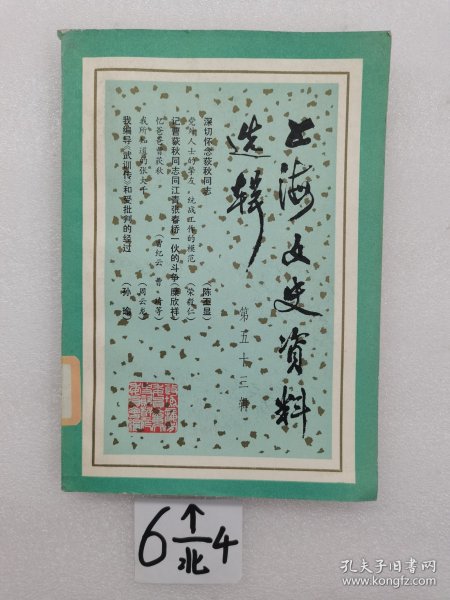 上海文史资料
选辑
第五十三辑
深切怀念荻秋同志 (陈丕显)
党外人士的挚友，统战工作的模范 (荣毅仁)
记曹荻秋同志同江青张春桥一伙的斗争 (陈欣祥)
忆爸爸曹荻秋 (曹纪云 曹 等)
我所知道的张大千 (周云龙)
我编导《武训传》和受批判的经过 (孙瑜)
6 个北 4
孔夫子旧书网
www.kongfz.com